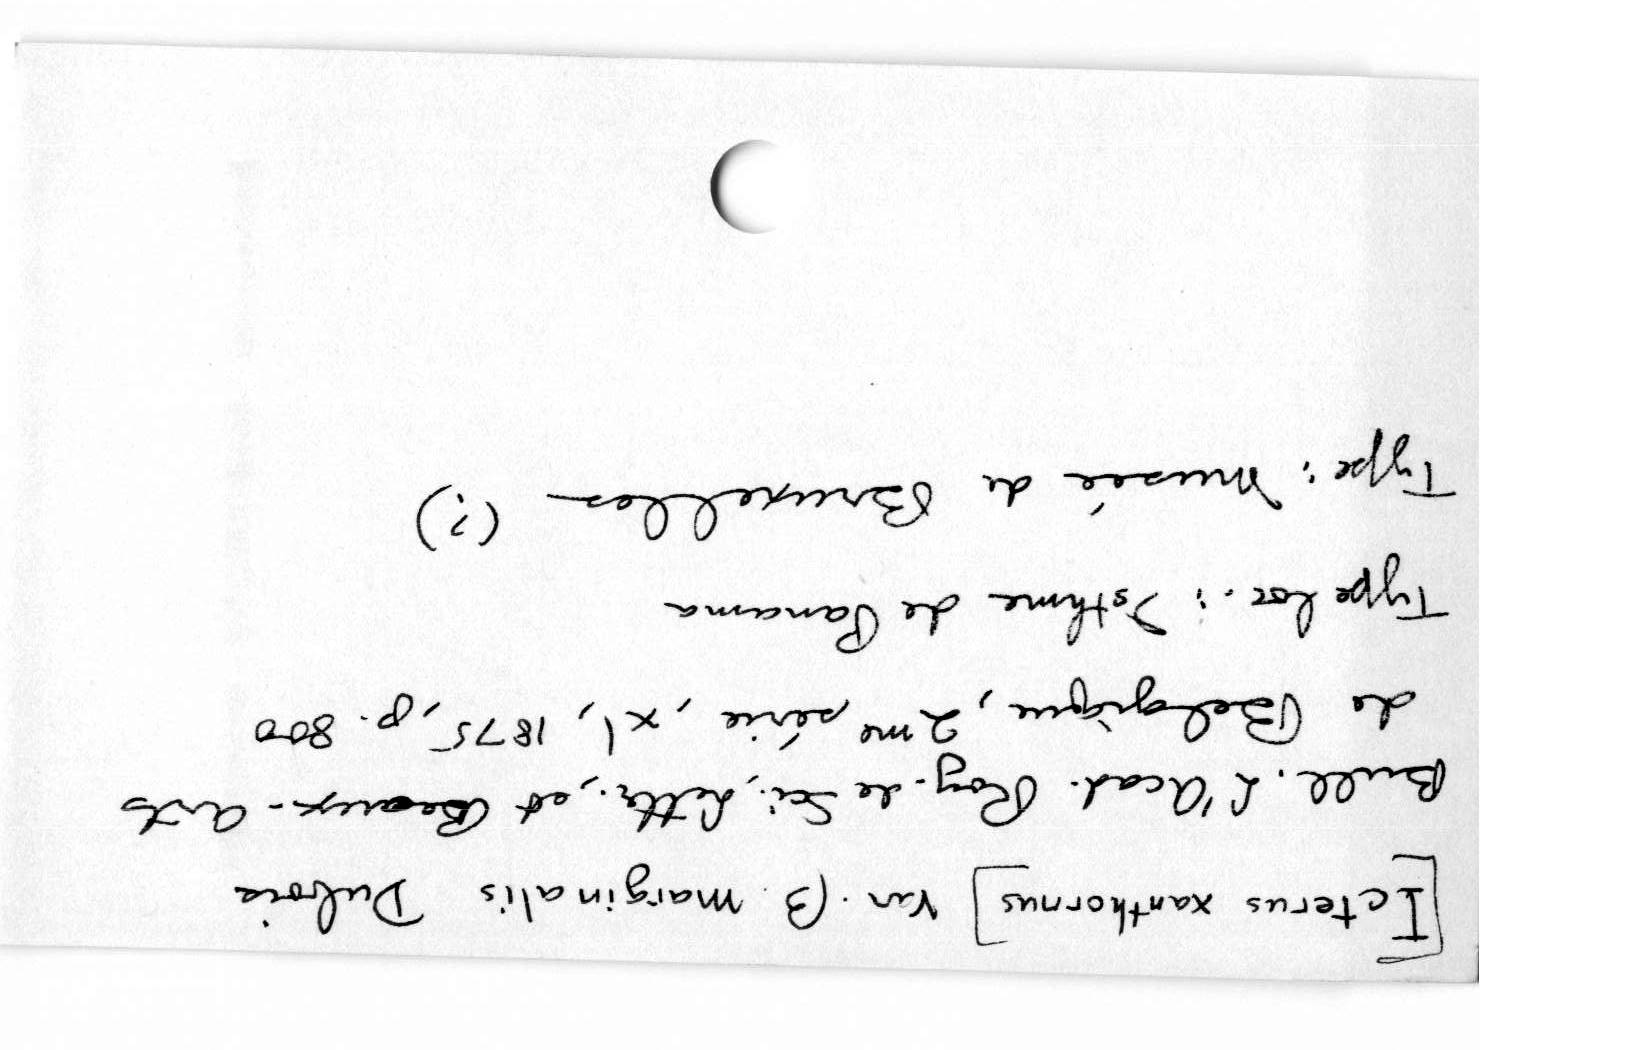 [Icterus xanthornus] Var. β. marginalis Dubois
Bull. L'Acad. Roy. de Sci., Lettr., et Beaux-Arts
de Belgique, 2me série, xl, 1875, p. 800
Type loc.: Isthme de Panama
Type: Musée de Bruxelles (?)